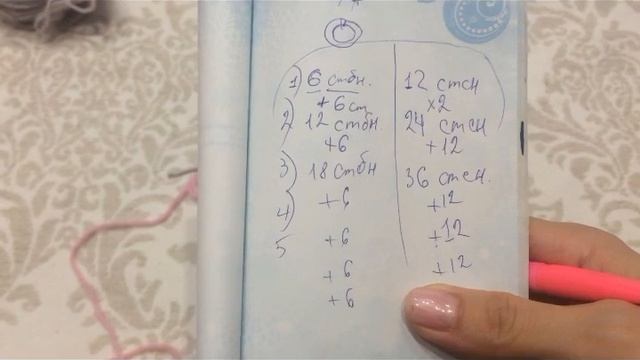 1) 6 стбн.
+6ст
2) 12 стбн.
+6
3) 18 стбн
+6
4)
+6
5
+6
+6
12 стсн
x2
24 стсн
+12
36 стсн.
+12
+12
+12